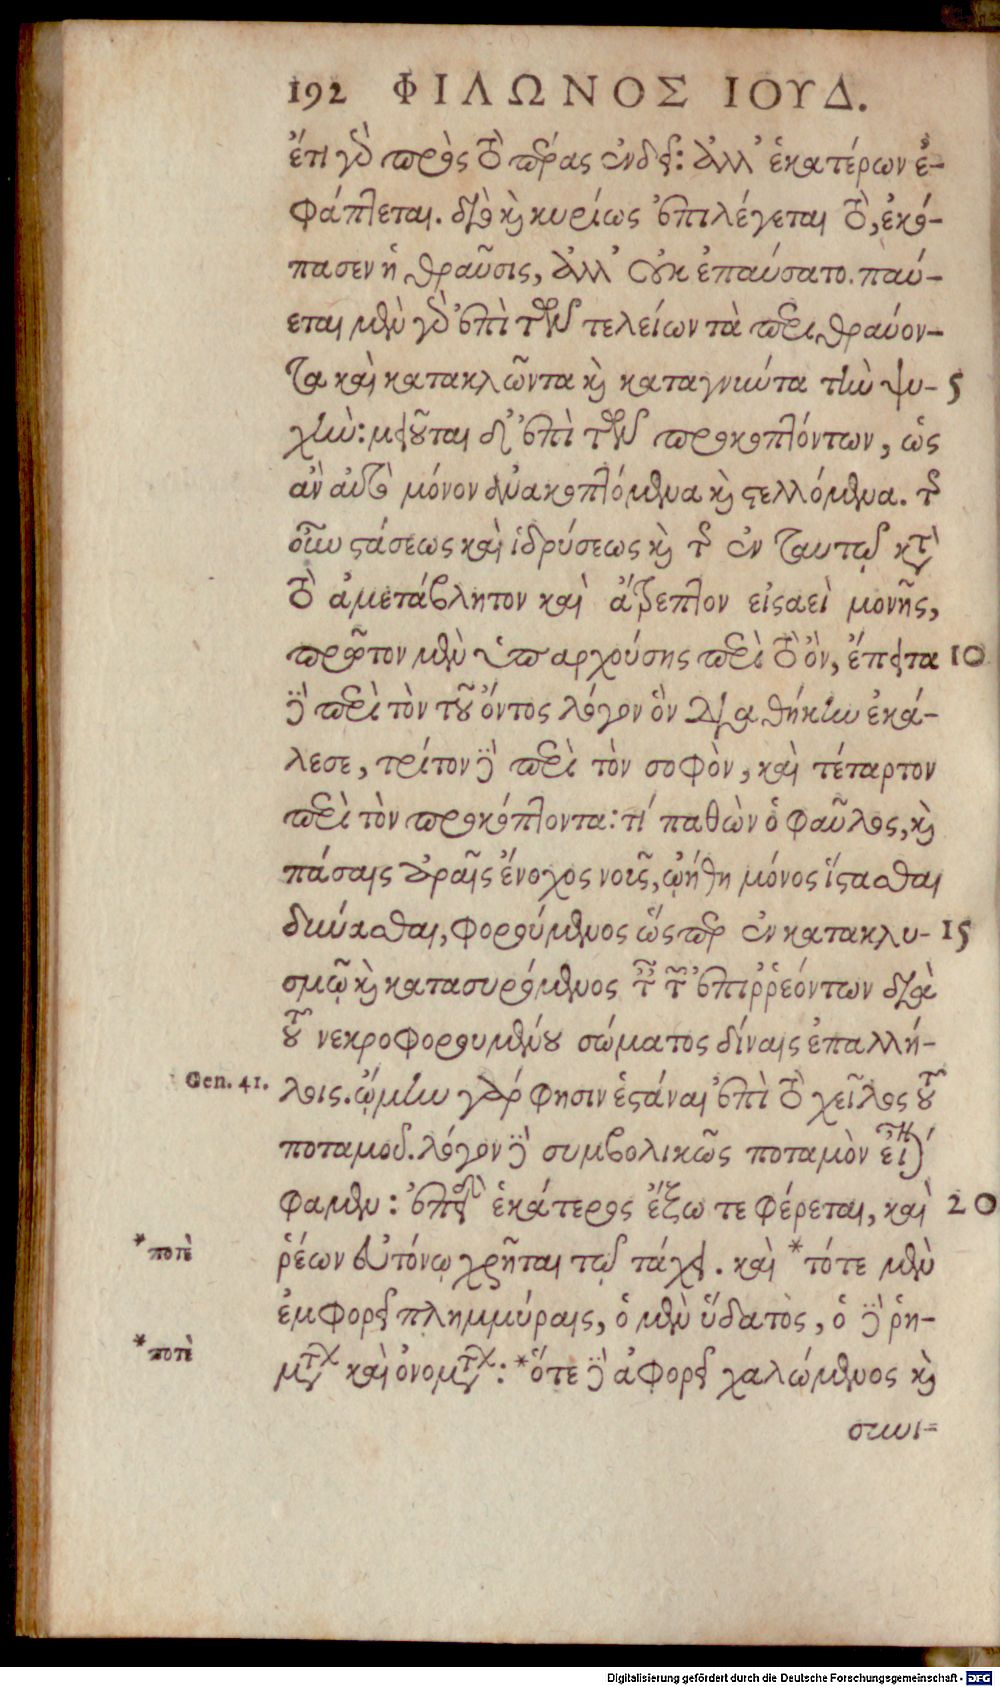 192 ΦΙΛΩΝΟΣ ΙΟΥΔ.
ἔτι γὰρ πρὸς τὸ πέρας ἐνδεῖ: ἀλλ᾽ ἑκατέρων ἐ-
φάπτεται. διὸ καὶ κυρίως ἐπιλέγεται τὸ, ἐκό-
πασεν ἡ θραῦσις, ἀλλ᾽ οὐκ ἐπαύσατο. παύ-
εται μὲν γὰρ ἐπὶ τῶν τελείων τὰ περιθραύον-
τα καὶ κατακλῶντα καὶ καταγνύντα τὴν ψυ- 5
χήν: μειοῦται δ᾽ ἐπὶ τῶν προκοπτόντων, ὡς
ἂν αὐτὸ μόνον ἀνακοπτόμενα καὶ στελλόμενα. τῆς
οὖν στάσεως καὶ ἱδρύσεως καὶ τῆς ἐν ταυτῷ κατὰ
τὸ ἀμετάβλητον καὶ ἄτρεπτον εἰσαεὶ μονῆς,
πρῶτον μὲν ὑπαρχούσης περὶ τὸ ὂν, ἔπειτα 10
δὲ περὶ τὸν τοῦ ὄντος λόγον ὃν διαθήκην ἐκά-
λεσε, τρίτον δὲ περὶ τὸν σοφὸν, καὶ τέταρτον
περὶ τὸν προκόπτοντα: τί παθὼν ὁ φαῦλος, καὶ
πάσαις ἀραῖς ἔνοχος νοῦς, ᾠήθη μόνος ἵστασθαι
δύνασθαι, φορούμενος ὥσπερ ἐν κατακλυ- 15
σμῷ καὶ κατασυρόμενος ταῖς τῶν ἐπιῤῥεόντων διὰ
τοῦ νεκροφορουμένου σώματος δίναις ἐπαλλή-
Gen. 41. λοις. ᾤμην γάρ φησιν ἑστάναι ἐπὶ τὸ χεῖλος τοῦ
ποταμοῦ. λόγον δὲ συμβολικῶς ποταμὸν εἶναί
φαμεν: ἐπειδὴ ἑκάτερος ἔξω τε φέρεται, καὶ 20
*ποτὲ ῥέων εὐτόνῳ χρῆται τῷ τάχει. καὶ *τότε μὲν
ἐμφορεῖ πλημμύραις, ὁ μὲν ὕδατὸς, ὁ δὲ ῥη-
*ποτὲ μάτων καὶ ὀνομάτων: *ὅτε δὲ ἀφορεῖ χαλώμενος καὶ
συνι-
Digitalisierung gefördert durch die Deutsche Forschungsgemeinschaft - DFG